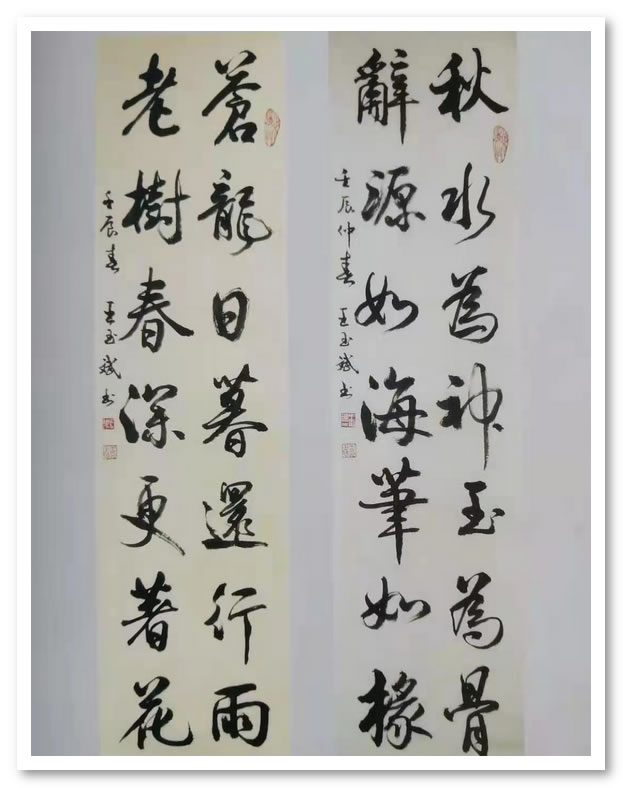 秋水為神玉為骨
辭源如海筆如椽
壬辰仲春 王玉斌書
蒼龍日暮還行雨
老樹春深更著花
壬辰春 王玉斌書